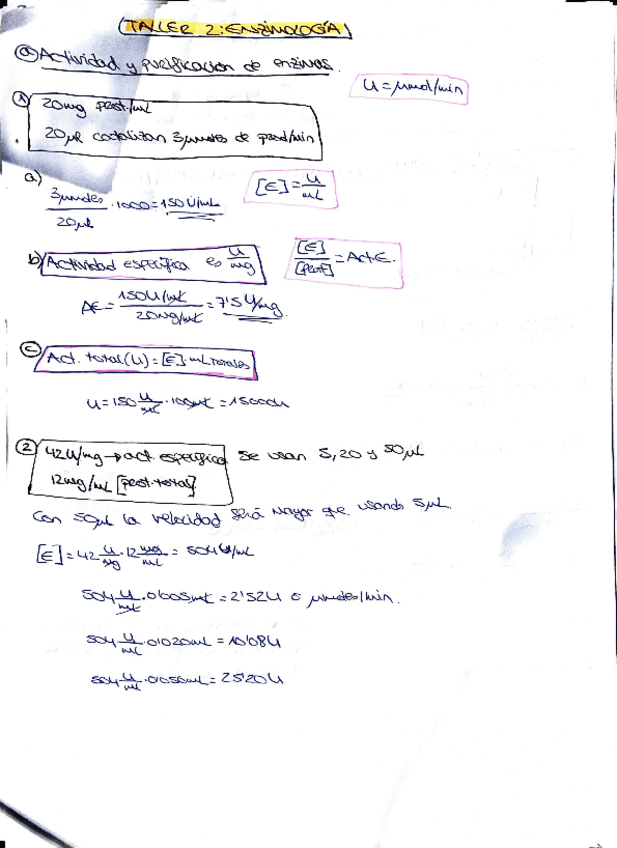 TALLER 2: ENZIMOLOGÍA
@ Actividad y purificacion de enzimas.
U = μmol/min
① 20mg prot./mL
20μL catalizan 3μmoles de prod/min
a) 3μmoles/20μL · 1000 = 150 U/mL
[E] = U/mL
b) Actividad especifica es U/mg
[E]/[Prot] = Act.E.
AE = 150U/mL / 20mg/mL = 7'5 U/mg.
c) Act. total (U) = [E] · mL totales
U = 150 U/mL · 100mL = 15000U
② 42U/mg → act. especifica Se usan 5, 20 y 50μL
12mg/mL [prot. total]
Con 50μL la velocidad será mayor que usando 5μL.
[E] = 42 U/mg · 12 mg/mL = 504 U/mL
504 U/mL · 0'005mL = 2'52U o μmoles/min.
504 U/mL · 0'020mL = 10'08U
504 U/mL · 0'050mL = 25'20U